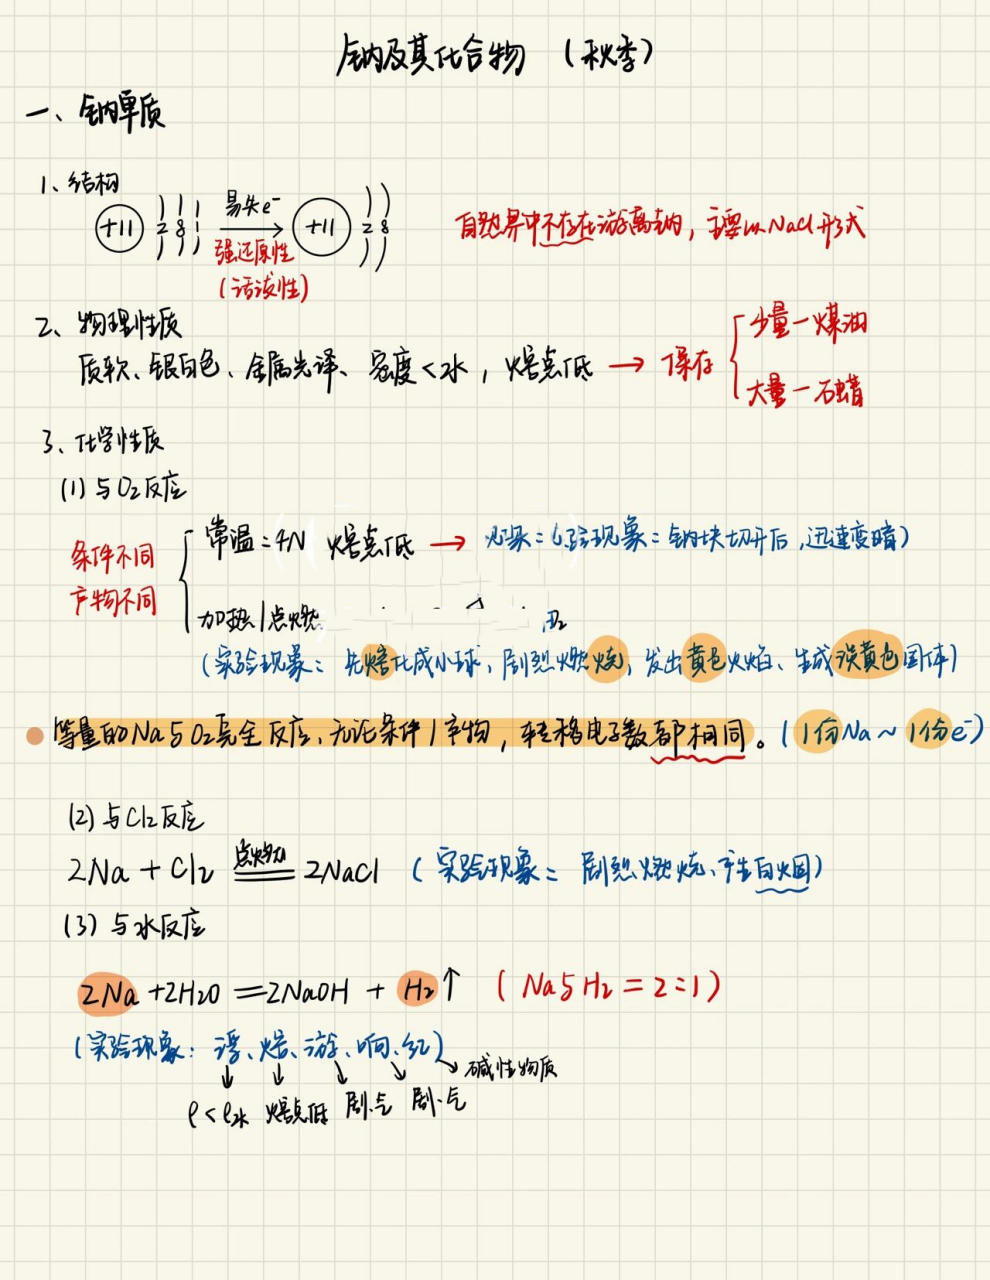 钠及其化合物 (秋季)
一、钠单质
1、结构
+11 2 8 1 易失e⁻ 强还原性 (活泼性) +11 2 8
自然界中不存在游离钠，主要以NaCl形式
2、物理性质
质软、银白色、金属光泽、密度<水，熔点低 → 保存
少量—煤油
大量—石蜡
3、化学性质
(1) 与O₂反应
条件不同
产物不同
常温：4N 熔点低 → 现象：钠块切开后，迅速变暗)
加热/点燃
(实验现象：先熔化成小球，剧烈燃烧，发出黄色火焰、生成淡黄色固体)
等量的Na与O₂完全反应，无论条件/产物，转移电子数都相同。(1份Na~1份e⁻)
(2) 与Cl₂反应
2Na + Cl₂ 点燃 == 2NaCl (实验现象：剧烈燃烧、产生白烟)
(3) 与水反应
2Na +2H₂O ==2NaOH + H₂↑ (Na与H₂ = 2:1)
(实验现象：浮、熔、游、响、红)
碱性物质
ρ<ρ水 熔点低 剧.气 剧.气